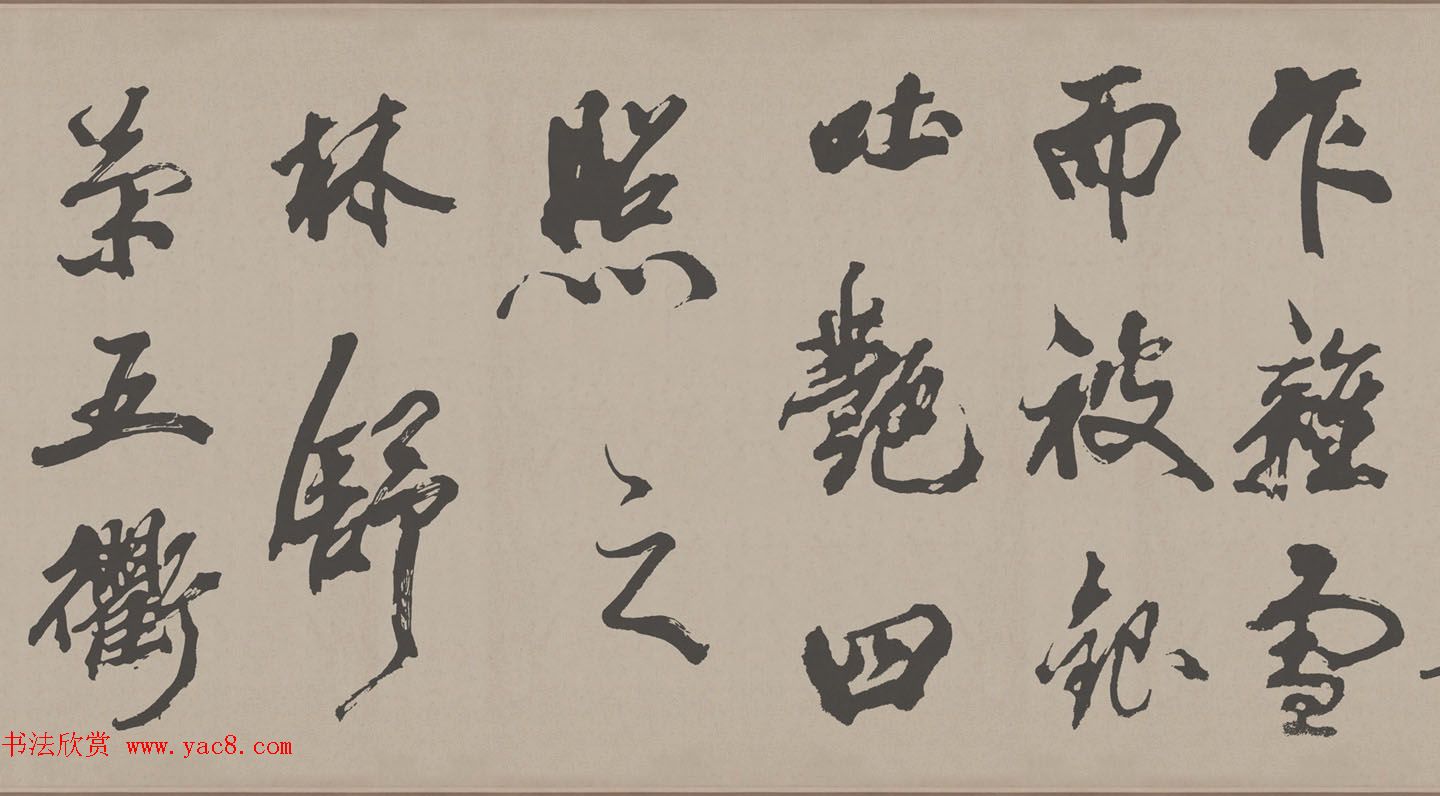 乍雜雪
而被銀
吐艷四
照之
林舒
荣五衢
书法欣赏 www.yac8.com